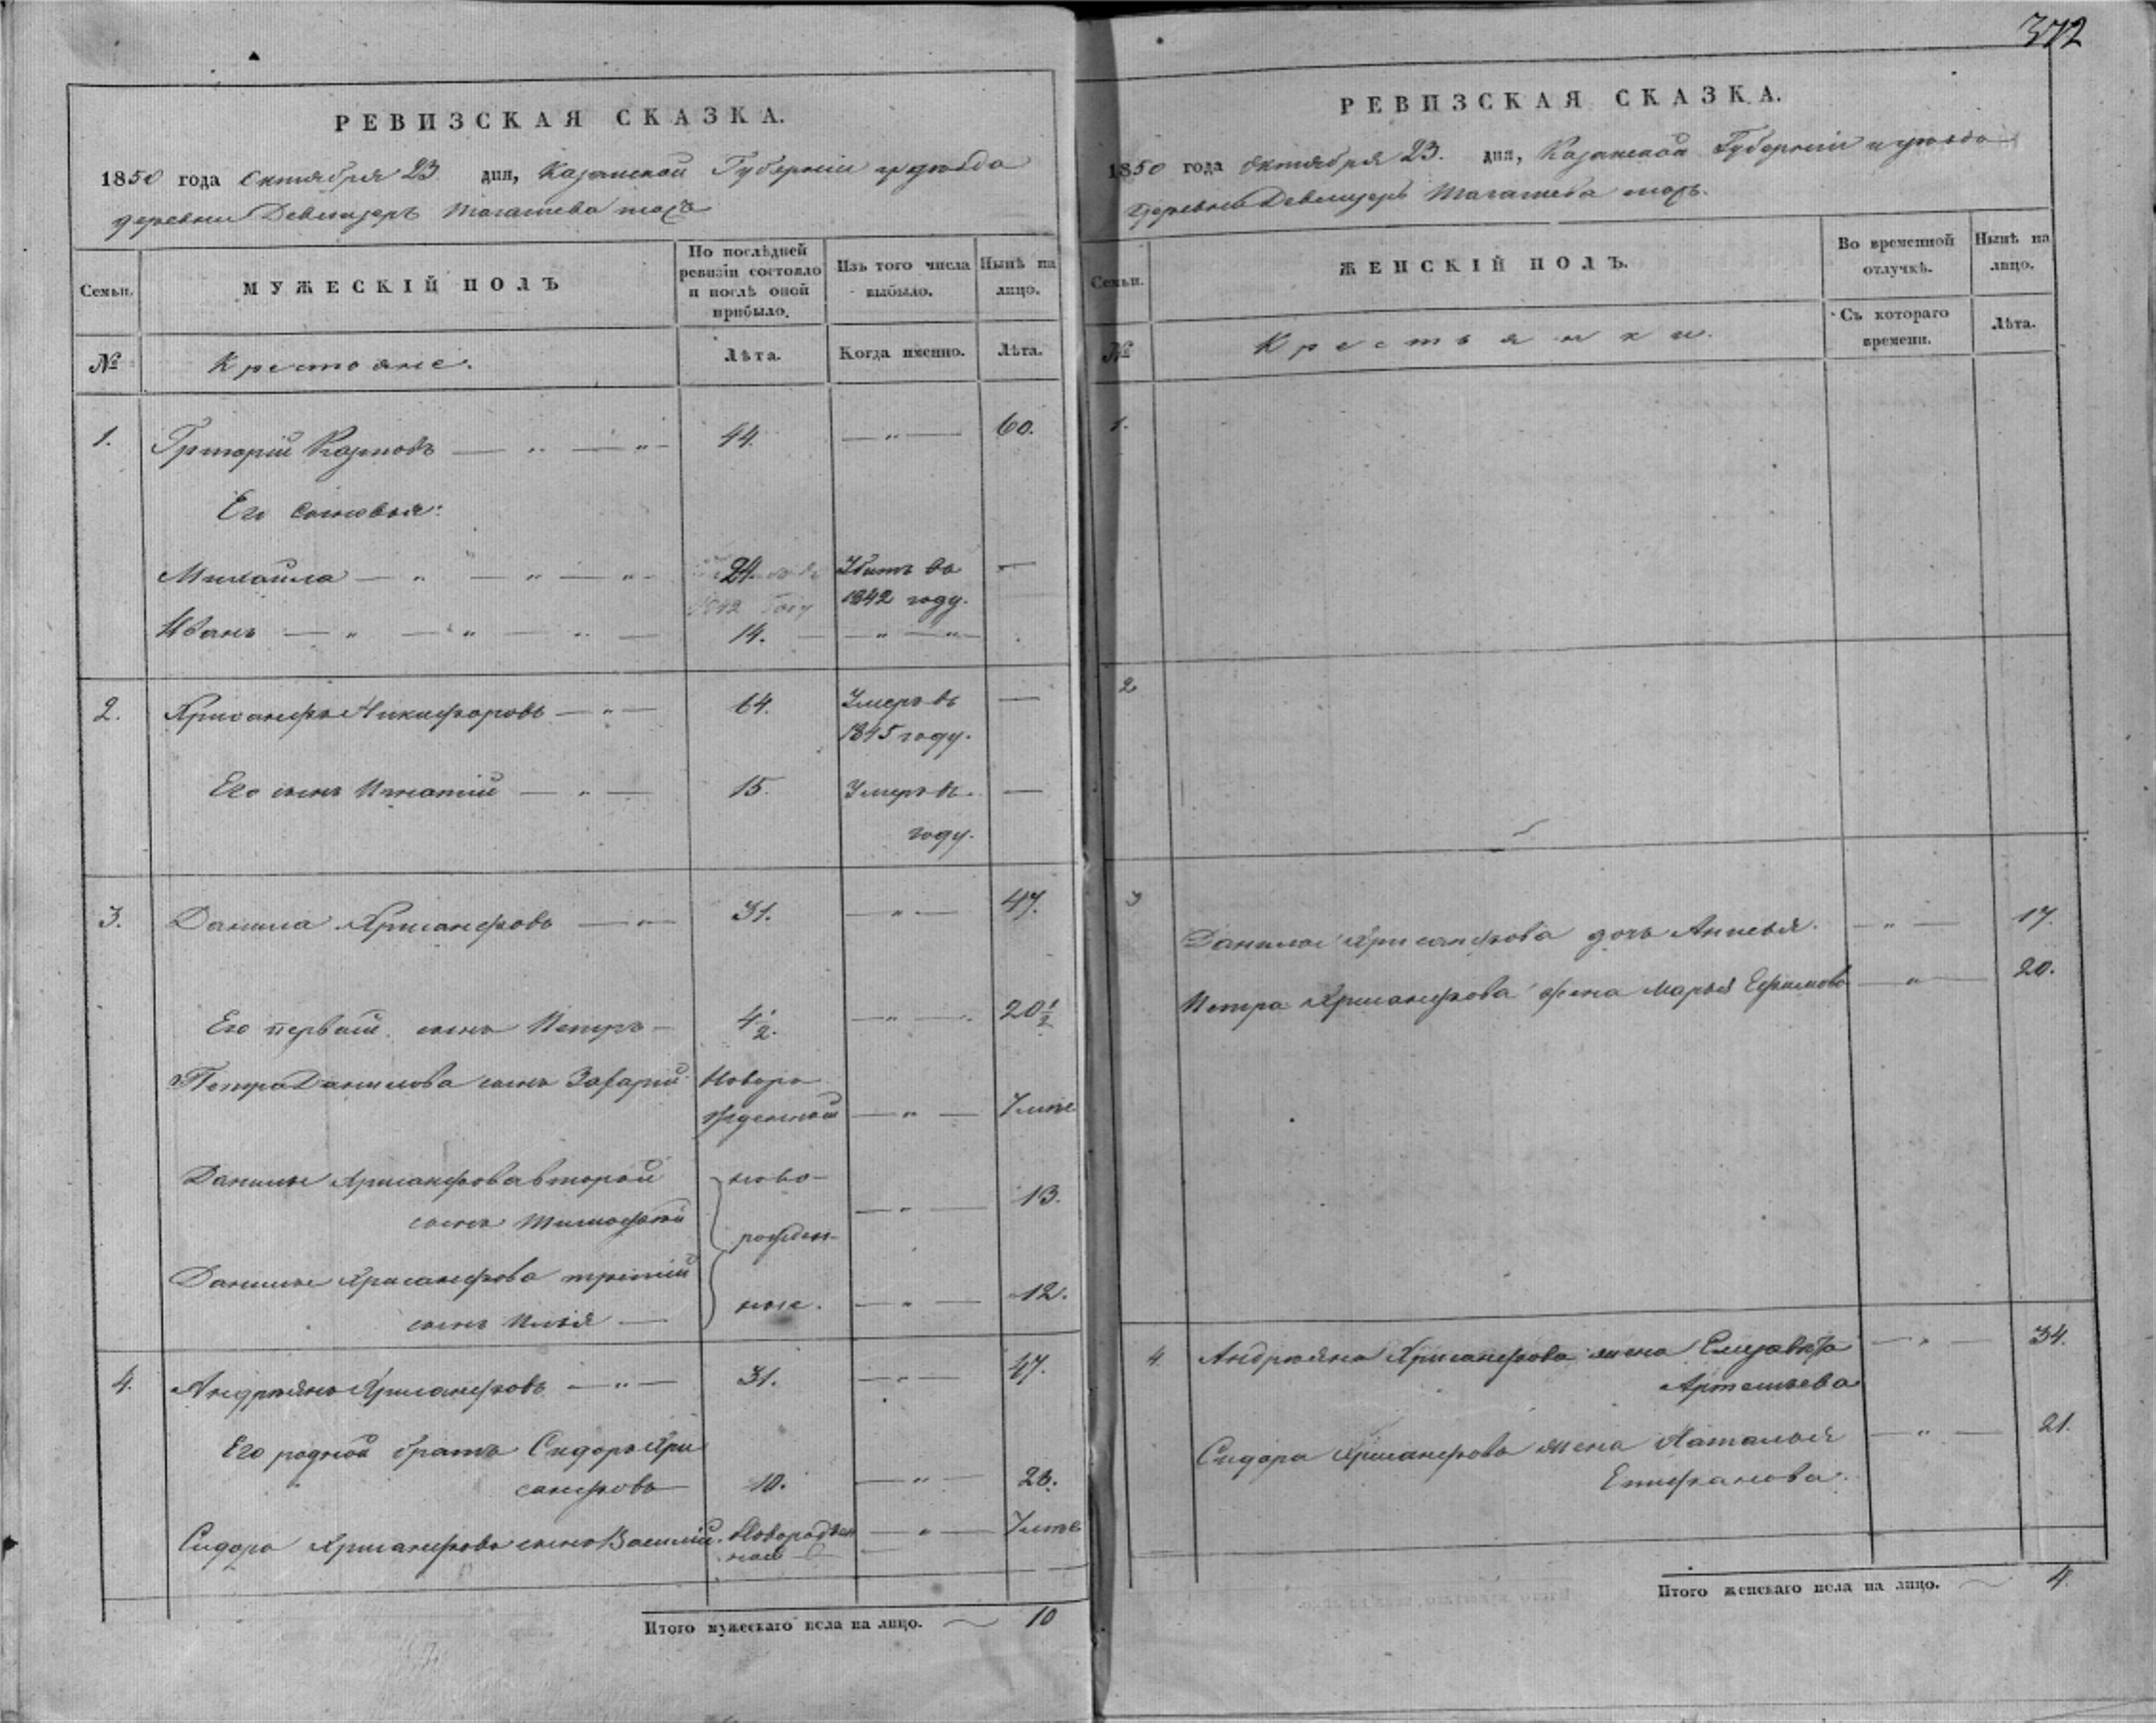 РЕВИЗСКАЯ СКАЗКА.
1850 года Октября 23 дня, Казанской Губернии и уезда
деревни Девлизерь тожъ
Семьи.
МУЖЕСКІЙ ПОЛЪ
По послѣдней
ревизіи состояло
и послѣ оной
прибыло.
Изъ того числа
выбыло.
Нынѣ на
лицо.
№
Крестьяне.
Лѣта.
Когда именно.
Лѣта.
1. Григорій — " — " — 44. — " — 60.
Его сыновья:
Михайла — " — " — " — 24. Убитъ въ —
1842 году.
Иванъ — " — " — " — 14. — " — " —
2. Хрисанфъ Никифоровъ — " — 64. Умеръ въ —
1845 году.
Его сынъ Игнатій — " — 15. Умеръ въ —
году.
3. Данила Хрисанфовъ — " — 31. — " — 47.
Его первый сынъ Петръ — 4 1/2. — " — 20 1/2
Петра Данилова сынъ Захарій Новоро
жденный — " — 7
Данилы Хрисанфова второй ново-
сынъ Тимофей — " — 13.
рожден-
Данилы Хрисанфова третій
сынъ Илья — ные. — " — 12.
4. Андреянъ Хрисанфовъ — " — 31. — " — 47.
Его родной братъ Сидоръ Хри
санфовъ 10. — " — 26.
Сидора Хрисанфова сынъ Василій. Новорожден
ной — " — 7
Итого мужескаго пола на лицо. 10
372
РЕВИЗСКАЯ СКАЗКА.
1850 года Октября 23. дня, Казанской Губерніи и уезда
деревни Девлизерь тожъ.
Семьи.
ЖЕНСКІЙ ПОЛЪ.
Во временной
отлучкѣ.
Нынѣ на
лицо.
№
Крестьянки.
Съ котораго
времени.
Лѣта.
1.
2
3
Данилы Хрисанфова дочь Анисья. — " — 17.
Петра Хрисанфова жена Марья Ефимова — " — 20.
4. Андреяна Хрисанфова жена Елизавета — " — 34.
Артемьева
Сидора Хрисанфова жена Наталья — " — 21.
Епифанова.
Итого женскаго пола на лицо. 4.